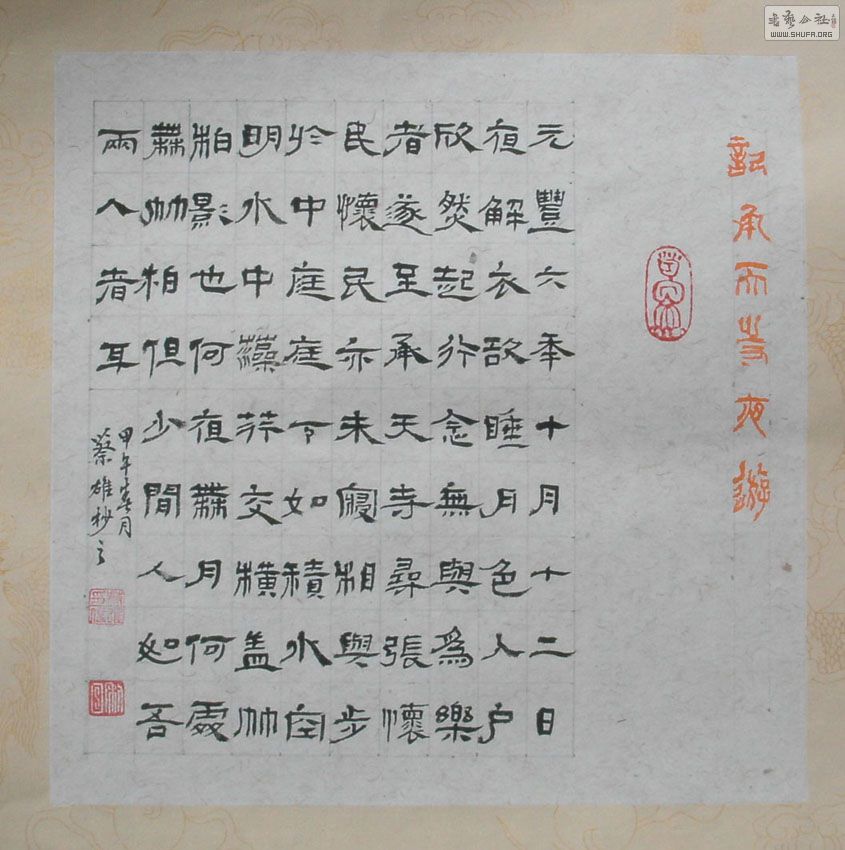 記承天寺夜遊
元豐六年十月十二日
夜解衣欲睡月色入户
欣然起行念無與爲樂
者遂至承天寺尋張懷
民懷民亦未寢相與步
於中庭庭下如積水空
明水中藻荇交橫盖竹
柏影也何夜無月何處
無竹柏但少閒人如吾
兩人者耳
甲午春月
蔡雄抄之
書藝公社
WWW.SHUFA.ORG